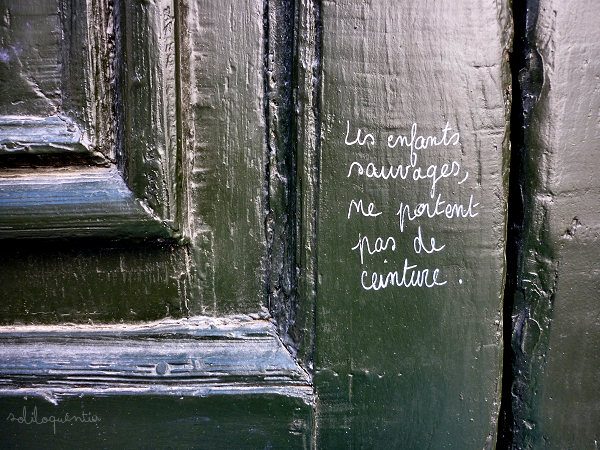 Les enfants
sauvages,
ne portent
pas de
ceinture.
soliloquentia